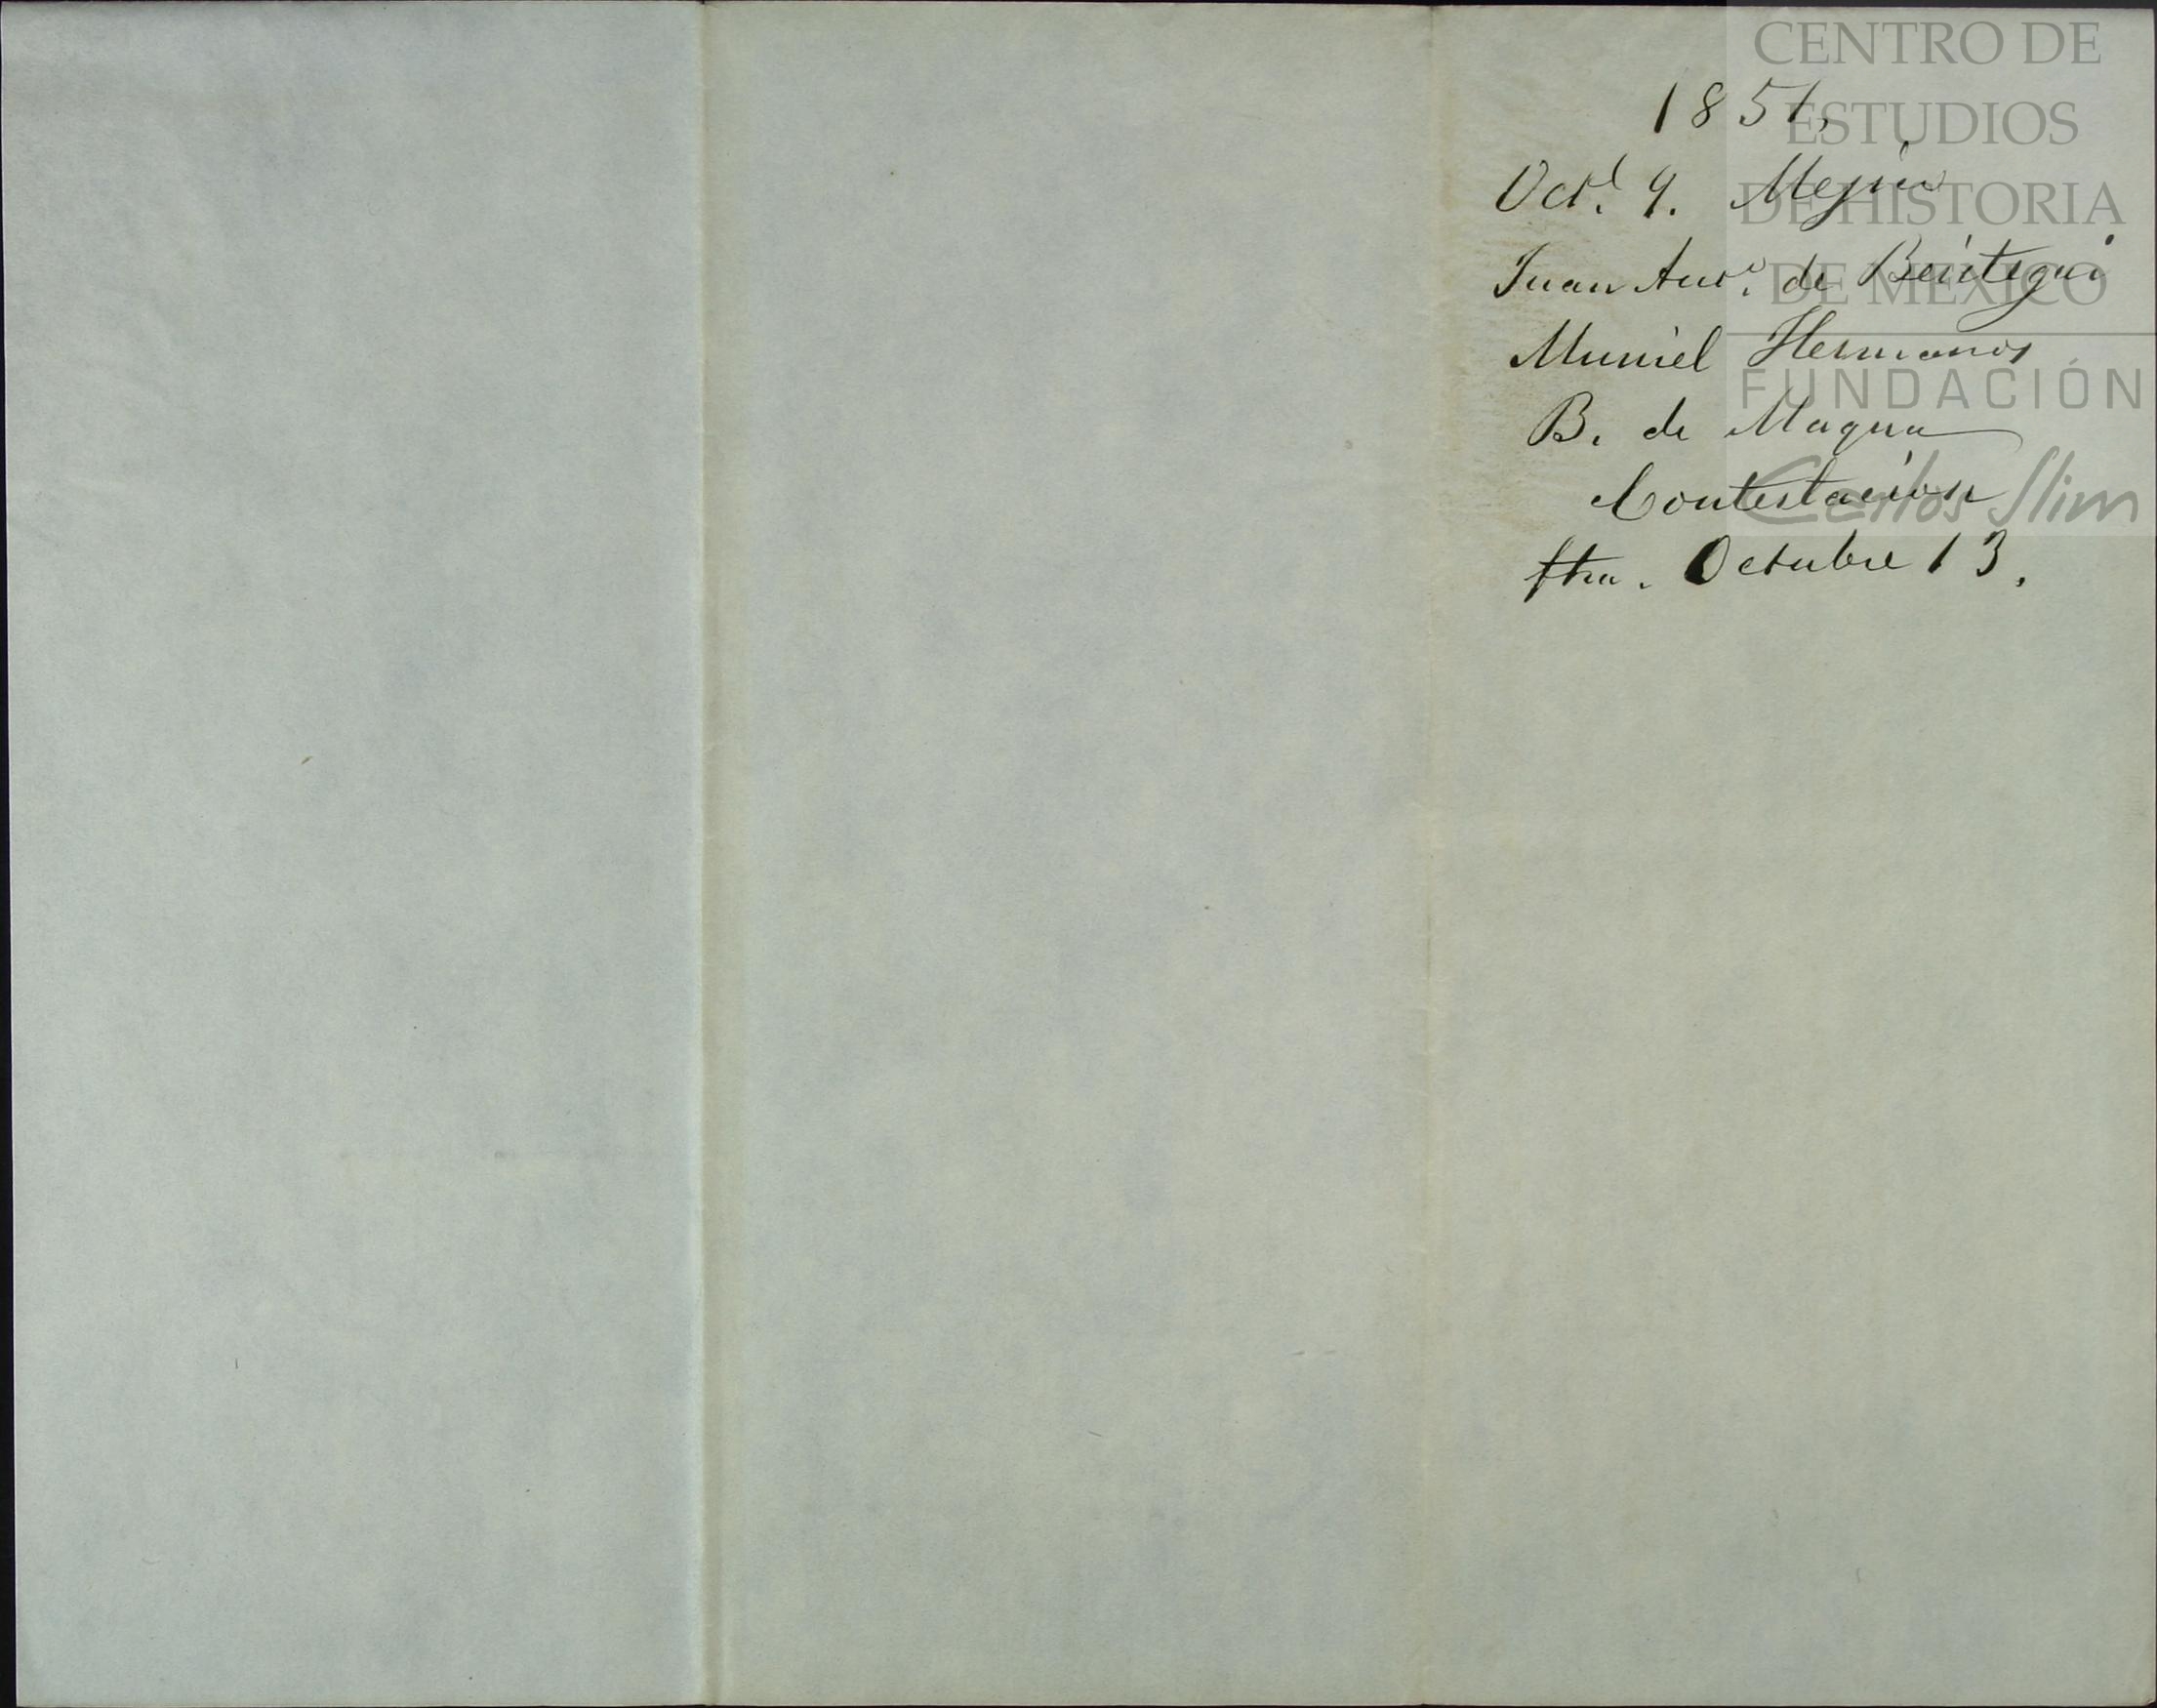 1851,
Oct.e 9. Mejico
Juan Anto. de Beistegui
Muriel Hermanos
B. de Maqua
Contestacion
ftra. Octubre 13.
CENTRO DE
ESTUDIOS
DE HISTORIA
DE MÉXICO
FUNDACIÓN
Carlos Slim